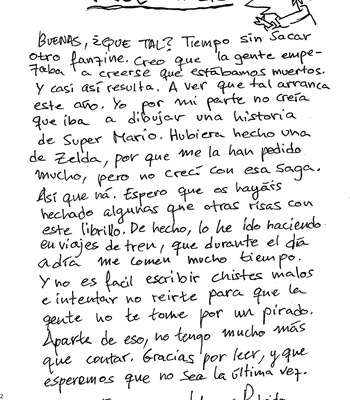 BUENAS, ¿QUE TAL? Tiempo sin sacar
otro fanzine. Creo que la gente empe-
zaba a creerse que estábamos muertos.
Y casi así resulta. A ver que tal arranca
este año. Yo por mi parte no creía
que iba a dibujar una historia
de Super Mario. Hubiera hecho una
de Zelda, por que me la han pedido
mucho, pero no crecí con esa saga.
Así que ná. Espero que os hayáis
hechado algunas que otras risas con
este librillo. De hecho, lo he ido haciendo
en viajes de tren, que durante el día
a día me comen mucho tiempo.
Y no es facil escribir chistes malos
e intentar no reirte para que la
gente no te tome por un pirado.
Aparte de eso, no tengo mucho más
que contar. Gracias por leer, y que
esperemos que no sea la última vez.
2